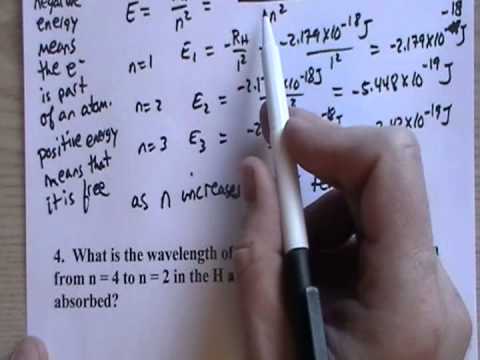 negative
energy
means
the e-
is part
of an atom.
positive energy
means that
it is free
E = n² =
n²
n=1 E₁ = -RH/1² -2.179×10⁻¹⁸J/1² = -2.179×10⁻¹⁸J
n=2 E₂ = ×10⁻¹⁸J = -5.448×10⁻¹⁹J
n=3 E₃ = ×10⁻¹⁹J
as n increases
4. What is the wavelength of
from n = 4 to n = 2 in the H
absorbed?